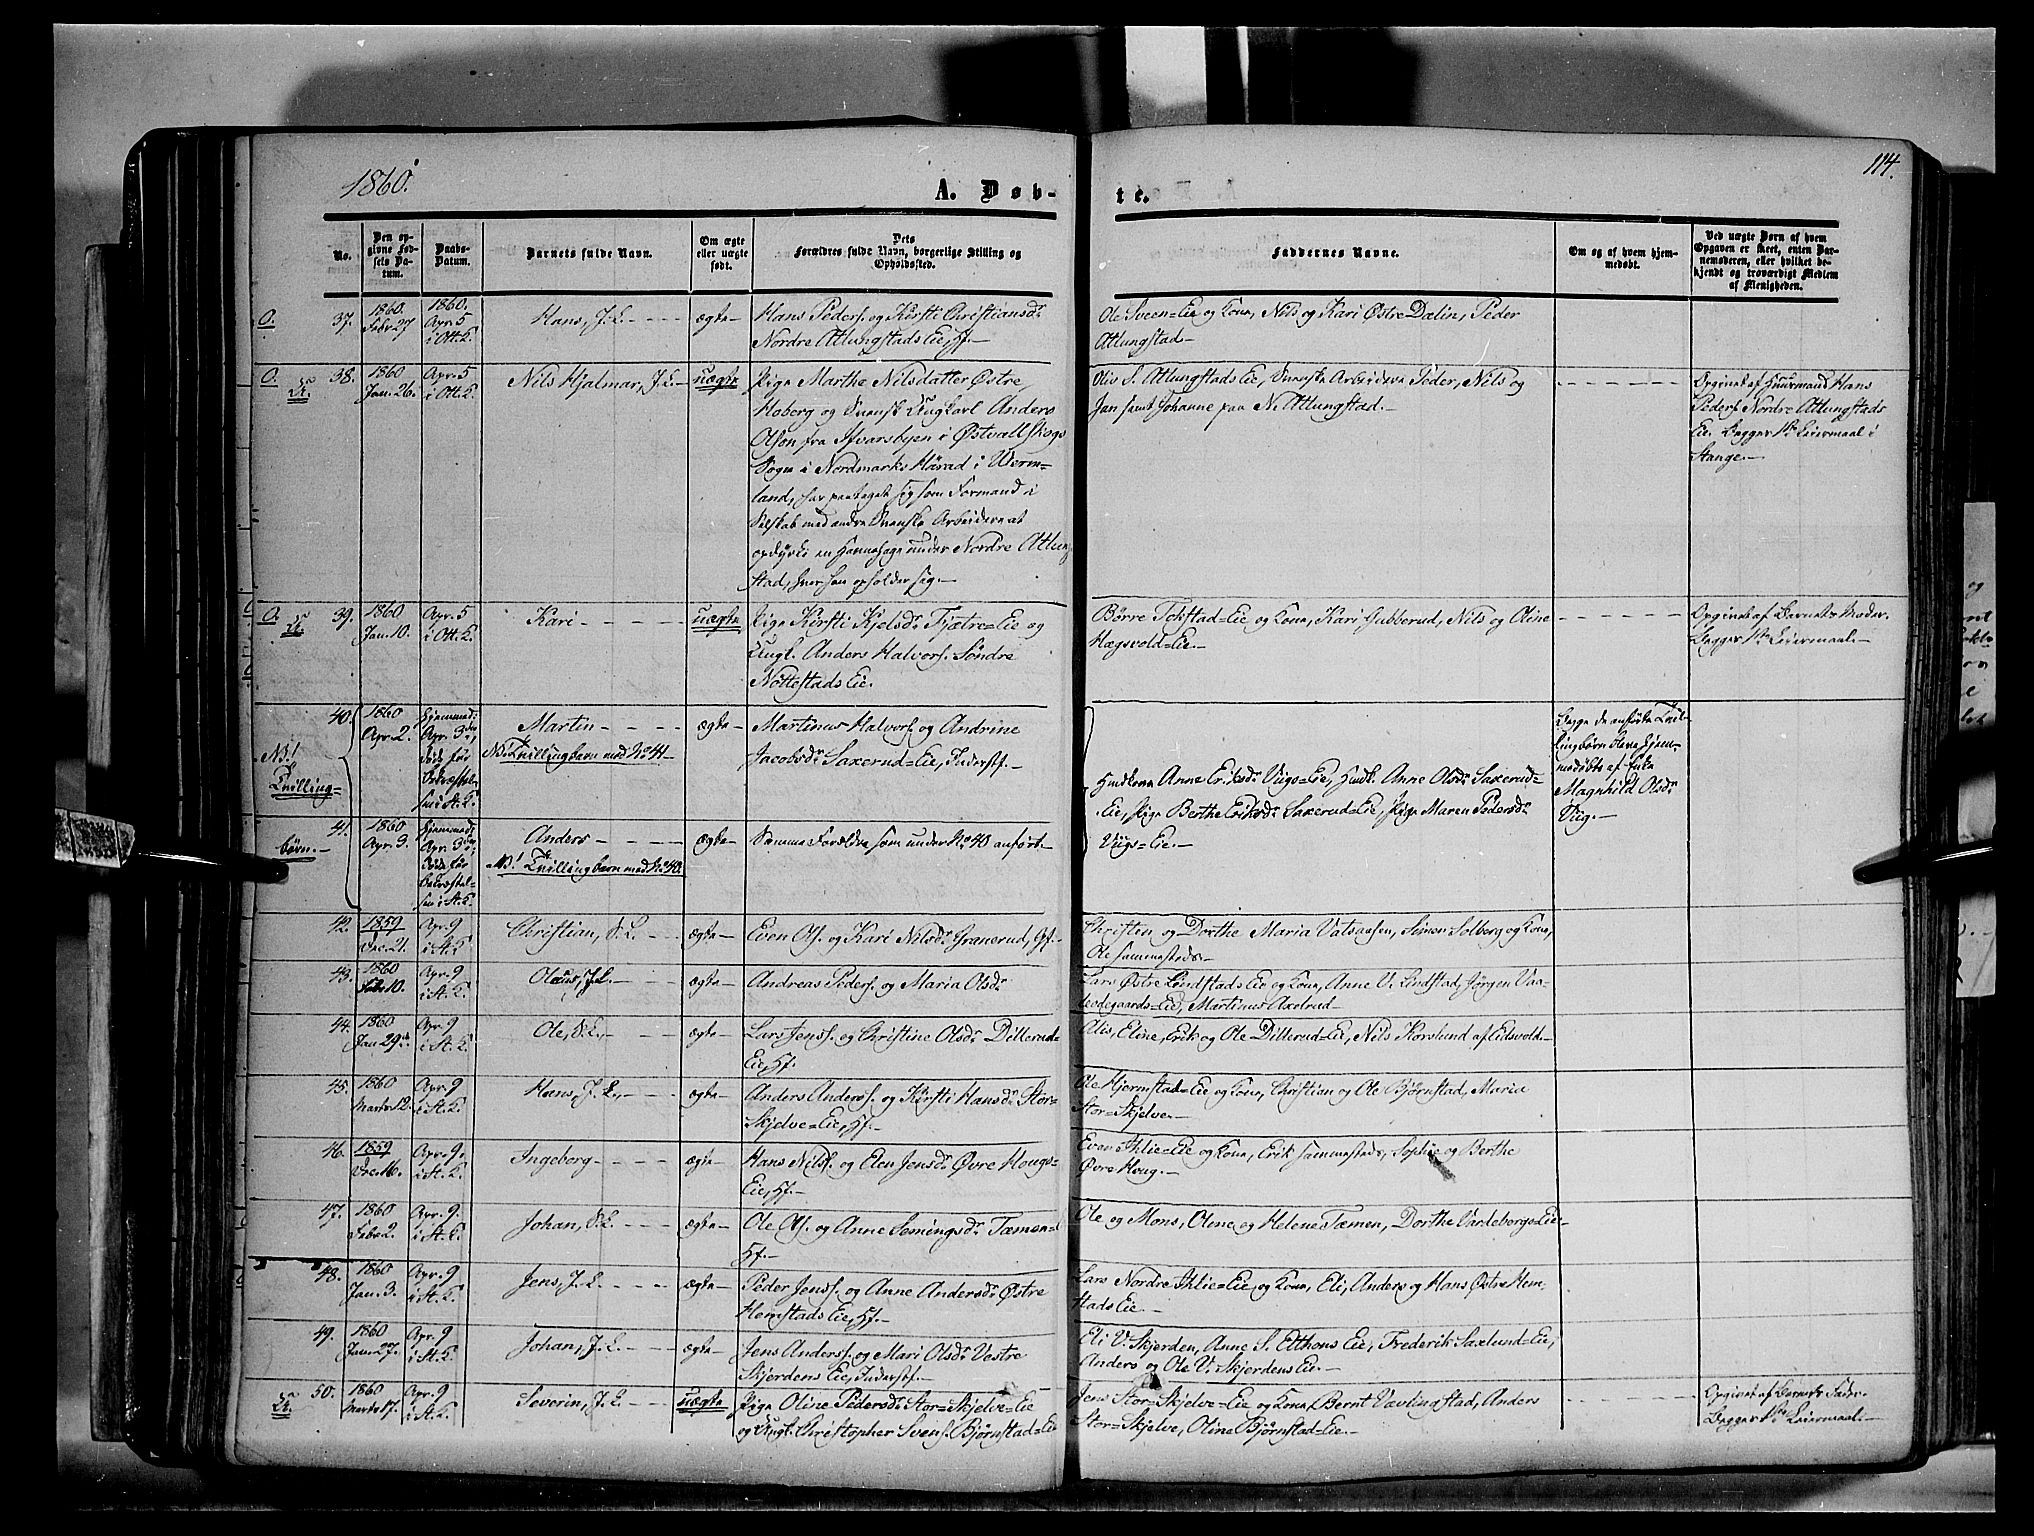 1860.
A. Døb-
te.
114.
No.
Den op-
givne Fød-
sels Da-
tum.
Daabs-
Datum.
Barnets fulde Navn.
Om ægte
eller uægte
født.
Dets
Forældres fulde Navn, borgerlige Stilling og
Opholdssted.
Faddernes Navne.
Om og af hvem hjem-
medøbt.
Ved uægte Børn af hvem
Opgaven er skeet, enten Bar-
nemoderen, eller hvilket be-
kjendt og troværdigt Medlem
af Menigheden.
O. 37.
1860.
Febr 27
1860.
Apr. 5
i Ott. K.
Hans, J. L. - - -
ægte-
Hans Peders. og Kirsti Christiansdr
Nordre Atlungstads Eie, Hf.-
Ole Sveen=Eie og Kone, Nils og Kari Østre Dælin, Peder
Atlungstad.-
O. 38.
1860
Jan. 26.
Apr. 5
i Ott. K.
Nils Hjalmar, J. L.-
uægte
Pige Marthe Nilsdatter Østre
Hoberg og Svensk Ungkarl Anders
Olson fra Ifvarsbyen i Østvallskogs
Sogn i Nordmarks Härad i Werm-
land, har paataget sig som Formand i
Selskab med andre Svenske Arbeidere at
opdyrke en Havnehage under Nordre Atlung
stad, hvor han opholder sig.-
Oliv S. Atlungstads Eie, Svenske Arbeidere Peder, Nils og
Jan samt Johanne paa N. Atlungstad.-
Opgivet af Huusmand Hans
Peders. Nordre Atlungstads
Eie. Begges 1ste Leiermaal i
Stange.-
O. 39.
1860
Jan. 10.
Apr. 5
i Ott. K.
Kari - - - -
uægte
Pige Kirsti Kjelsdr Tjætre=Eie og
Ungk. Anders Halvors. Søndre
Nøttestads Eie.
Børre Tokstad=Eie og Kone, Kari Gubberud, Nils og Oline
Hægsvold=Eie.-
Opgivet af Barnets Moder.
Begges 1ste Leiermaal.-
NB!
Tvilling=
børn.-
40.
1860
Apr. 2.
Hjemmed:
Apr. 3die,
død før
Bekræftel-
sen i St. K.
Martin - - - -
NB! Tvillingbarn med No 41-
ægte-
Martinus Halvors. og Andrine
Jacobsdr Saxerud=Eie, Inderst.-
Huuskone Anne Eriksdr Uugs=Eie, Huusk. Anne Olsdr Saxerud=
Eie, Pige Berthe Eriksdr Saxerud=Eie, Pige Maren Pedersdr
Uugs=Eie.-
Begge de anførte Tvil-
lingbørn bleve hjem-
medøbte af Enke
Magnhild Olsdr
Uug.-
41.
1860
Apr. 3.
Hjemmed:
Apr. 3die,
død før
Bekræftel-
sen i St. K.
Anders - - -
NB! Tvillingbarn med No 40.
ægte-
Samme Forældre som under No 40 anført.-
42.
1859
Dec. 21.
Apr. 9
i St. K
Christian, S. L. - -
ægte-
Even Ols. og Kari Nilsdr Granerud, Gf.-
Christen og Dorthe Maria Vatsaasen, Simen Solberg og Kone,
Ole sammesteds.-
43.
1860
Febr 10.
Apr. 9
i St. K.
Olaus, J. L. - -
ægte-
Andreas Peders. og Maria Olsdr
Lars Østre Lindstads Eie og Kone, Anne V. Lindstad, Jørgen Vaa-
leødegaards=Eie, Martinus Axelrud-
44.
1860
Jan 29de
Apr. 9
i St. K.
Ole, S. L., - -
ægte-
Lars Jens. og Christine Olsdr Dillerud=
Eie, Hf.
Olis, Eline, Erik og Ole Dillerud=Eie, Nils Korslund af Eidsvold.-
45.
1860
Marts 12.
Apr. 9
i St. K.
Hans, J. L., - -
ægte-
Anders Anders. og Kirsti Hansdr Stor=
Skjelve=Eie, Hf.-
Ole Hjermstad=Eie og Kone, Christian og Ole Bjørnstad, Maria
Stor=Skjelve.-
46.
1859
Dec. 16.
Apr. 9.
i St. K.
Ingeborg - - - -
ægte-
Hans Nils. og Elen Jensdr Øvre Hougs=
Eie, Hf.-
Even Ihlie=Eie og Kone, Erik sammesteds, Sophie og Berthe
Øvre Houg.-
47.
1860
Febr 2.
Apr. 9.
i St. K.
Johan, S. L. - - -
ægte-
Ole Ols. og Anne Semingsdr Tæmen=
Hf.-
Ole og Mons, Olene og Helene Tæmen, Dorthe Vardebergs=Eie-
48.
1860
Jan. 3.
Apr. 9
i St. K.
Jens, J. L. - - -
ægte-
Peder Jens. og Anne Andersdr Østre
Hemstads Eie, Hf.-
Lars Nordre Ihlie=Eie og Kone, Eli, Anders og Hans Østre Hem-
stads Eie.-
49.
1860
Jan. 27.
Apr. 9
i St. K.
Johan, J. L. - - -
ægte-
Jens Anders. og Mari Olsdr Vestre
Skjerdens Eie, Inderst.-
Eli V. Skjerden, Anne S. Otthons Eie, Frederik Saxlund=Eie,
Anders og Ole V. Skjerdens Eie.-
50.
1860
Marts 17.
Apr. 9
i St. K.
Severin, J. L. - -
uægte
Pige Oline Pedersdr Stor=Skjelve=Eie
og Ungk. Christopher Svens. Bjørnstad=Eie
Jens Stor=Skjelve=Eie og Kone, Bernt Vævlingstad, Anders
Stor=Skjelve, Oline Bjørnstad=Eie.-
Opgivet af Barnets Fader.
Begges 1ste Leiermaal.-